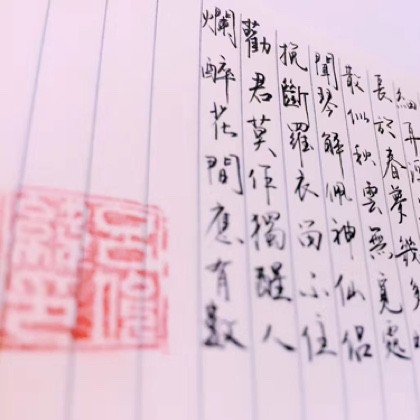 細
長於春夢幾多
散似秋雲無覓處
聞琴解佩神仙侶
挽斷羅衣留不住
勸君莫作獨醒人
爛醉花間應有數